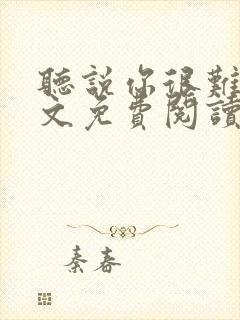 聽說你很難
文免費閱讀
秦春